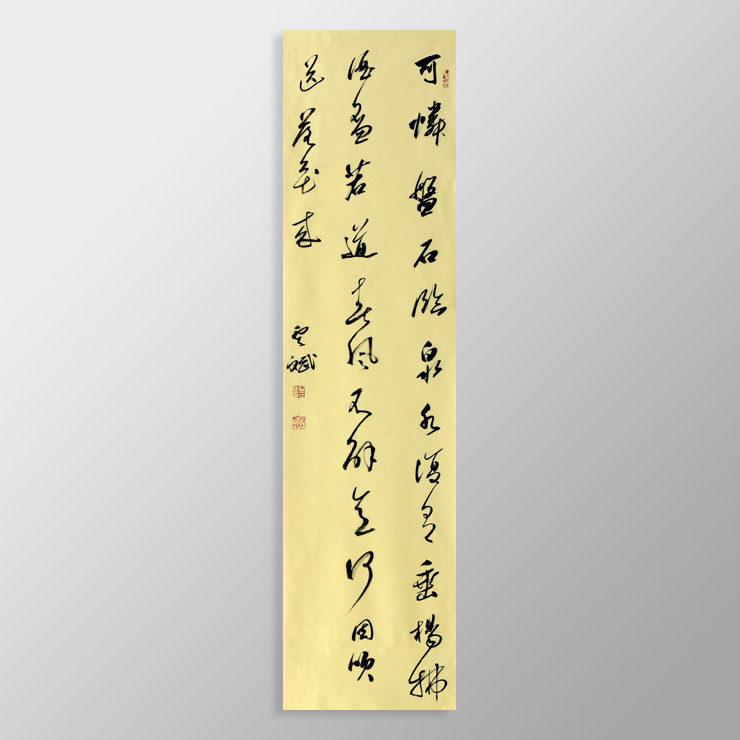 可憐盤石臨泉水復有垂楊拂
酒盃若道春風不解意何因吹
送落花來
斌